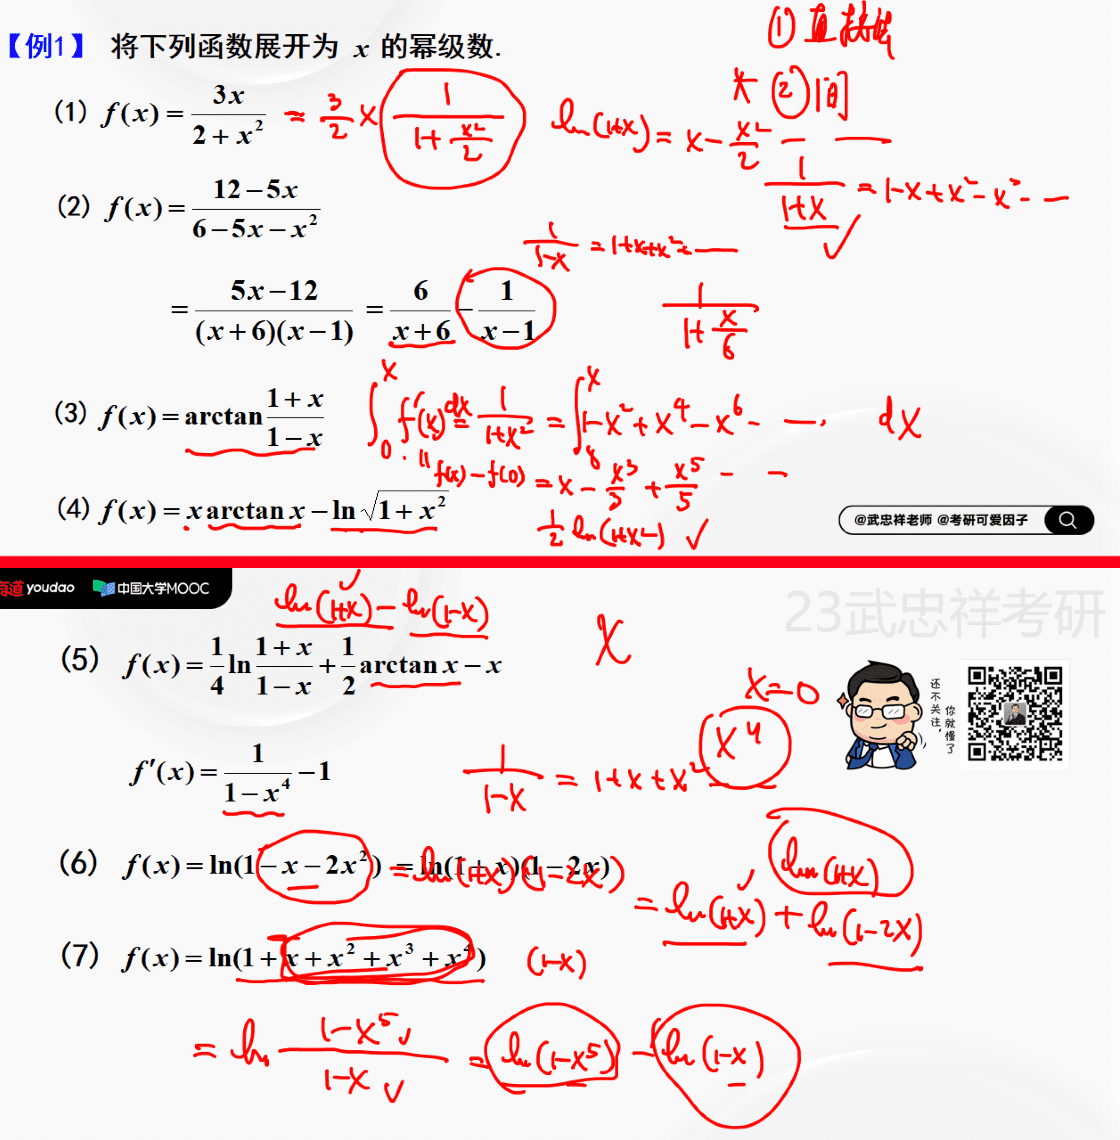 【例1】 将下列函数展开为 x 的幂级数.
① 直接法
* ② 间
(1) f(x) = 3x / (2 + x²) = 3/2 x · 1 / (1 + x²/2)
ln(1+x) = x - x²/2 - —
1/(1+x) = 1-x+x²-x³- — ✓
(2) f(x) = (12-5x) / (6-5x-x²)
1/(1-x) = 1+x+x²+ —
= (5x-12) / ((x+6)(x-1)) = 6/(x+6) - 1/(x-1)
1 / (1 + x/6)
(3) f(x) = arctan (1+x)/(1-x)
∫₀ˣ f'(x)dx = 1/(1+x²) = ∫₀ˣ 1-x²+x⁴-x⁶- — . dx
f(x)-f(0) = x - x³/3 + x⁵/5 - -
(4) f(x) = x arctan x - ln √(1+x²)
1/2 ln(1+x²) ✓
@武忠祥老师 @考研可爱因子
有道 youdao 中国大学MOOC
23武忠祥考研
ln(1+x) - ln(1-x)
(5) f(x) = 1/4 ln (1+x)/(1-x) + 1/2 arctan x - x
x
x=0
还不关注,
你就慢了
f′(x) = 1/(1-x⁴) - 1
1/(1-x) = 1+x+x²
x⁴
(6) f(x) = ln(1-x-2x²) = ln(1+x)(1-2x)
= ln(1+x)(1-2x)
ln(1+x)
= ln(1+x) + ln(1-2x)
(7) f(x) = ln(1+x+x²+x³+x⁴)
(1-x)
= ln (1-x⁵)/(1-x) = ln(1-x⁵) - ln(1-x)